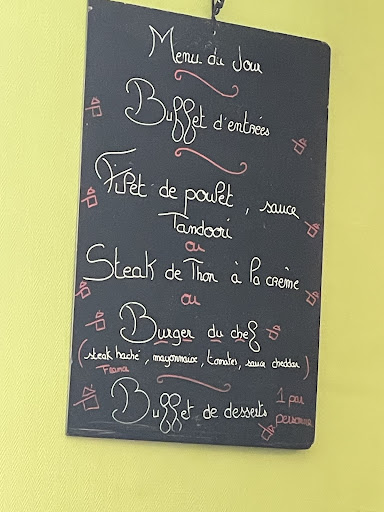 Menu du Jour
Buffet d'entrées
Filet de poulet, sauce
Tandoori
ou
Steak de Thon à la crème
ou
Burger du chef
(steak haché, mayonnaise, tomates, sauce cheddar)
Buffet de desserts
1 par
personne